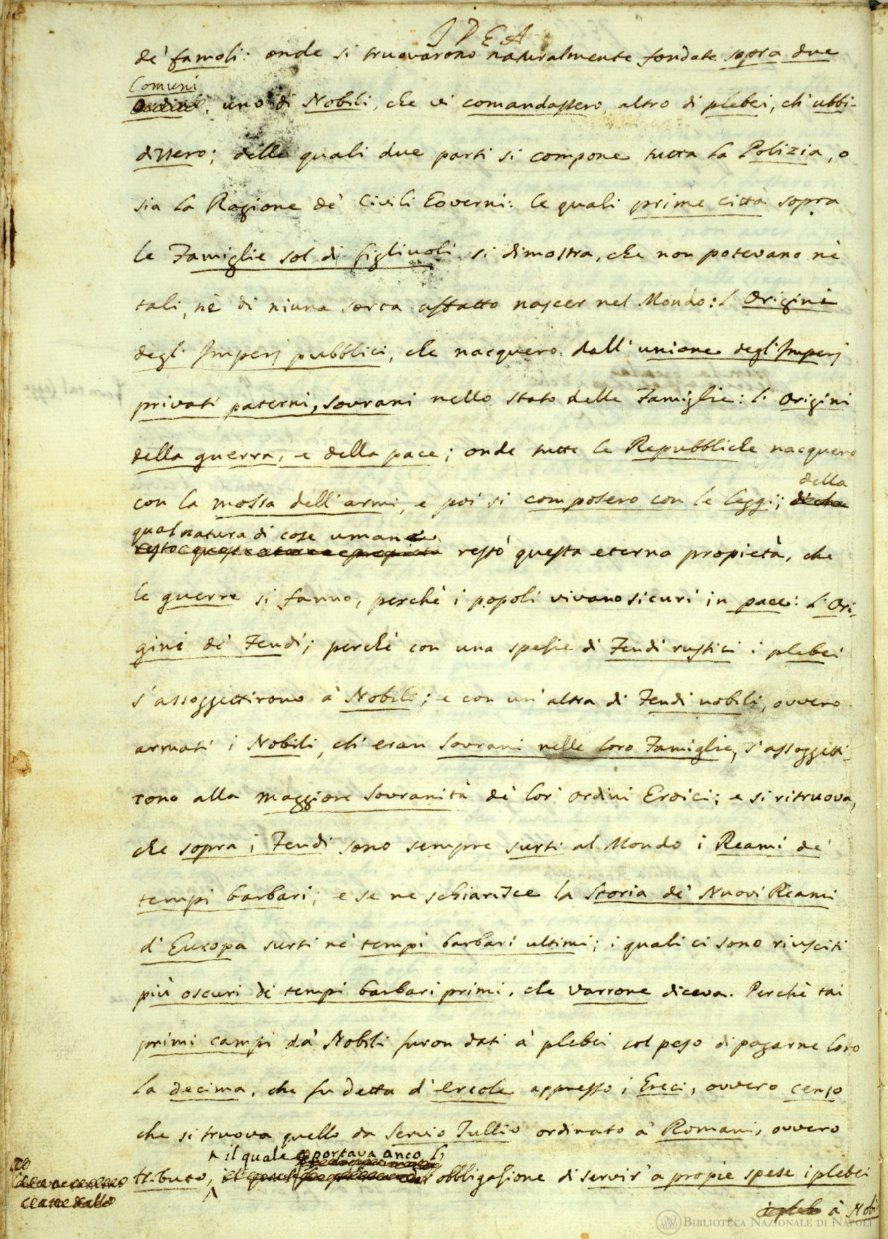 IDEA
de' famoli: onde si truovarono naturalmente fondate sopra due
Comuni
uno di Nobili, che vi comandassero, altro di plebei, ch'ubbi-
dissero; delle quali due parti si compone tutta la Polizia, o
sia la Ragione de' Civili Governi: le quali prime città sopra
le Famiglie sol di figliuoli si dimostra, che non potevano nè
tali, nè di niuna sorta affatto nascer nel Mondo: l'Origini
degl'Imperj pubblici, che nacquero dall'unione degl'Imperj
privati paterni, sovrani nello stato delle Famiglie: l'Origini
della guerra, e della pace; onde tutte le Repubbliche nacquero
della
con la mossa dell'armi, e poi si composero con le leggi;
qual natura di cose umane
restò questa eterna propietà, che
le guerre si fanno, perchè i popoli vivano sicuri in pace: l'Ori-
gini de' Feudi; perchè con una spesie di Feudi rustici i plebei
s'assoggettirono a' Nobili; e con un'altra di Feudi nobili, ovvero
armati i Nobili, ch'eran Sovrani nelle loro Famiglie, s'assoggetti-
rono alla maggiore Sovranità de' lor' Ordini Eroici; e si ritruova,
che sopra i Feudi sono sempre surti al Mondo i Reami de'
tempi barbari; e se ne schiarisce la Storia de' Nuovi Reami
d'Europa surti ne' tempi barbari ultimi; i quali ci sono riusciti
più oscuri de' tempi barbari primi, che Varrone diceva. Perchè tai
primi campi da' Nobili furon dati a' plebei col peso di pagarne loro
la decima, che fu detta d'Ercole appresso i Greci, ovvero censo
che si truova quello da Servio Tullio ordinato a' Romani, ovvero
il quale portava anco l'
tributo, obbligasione di servir' a propie spese i plebei
a' Nobi
BIBLIOTECA NAZIONALE DI NAPOLI